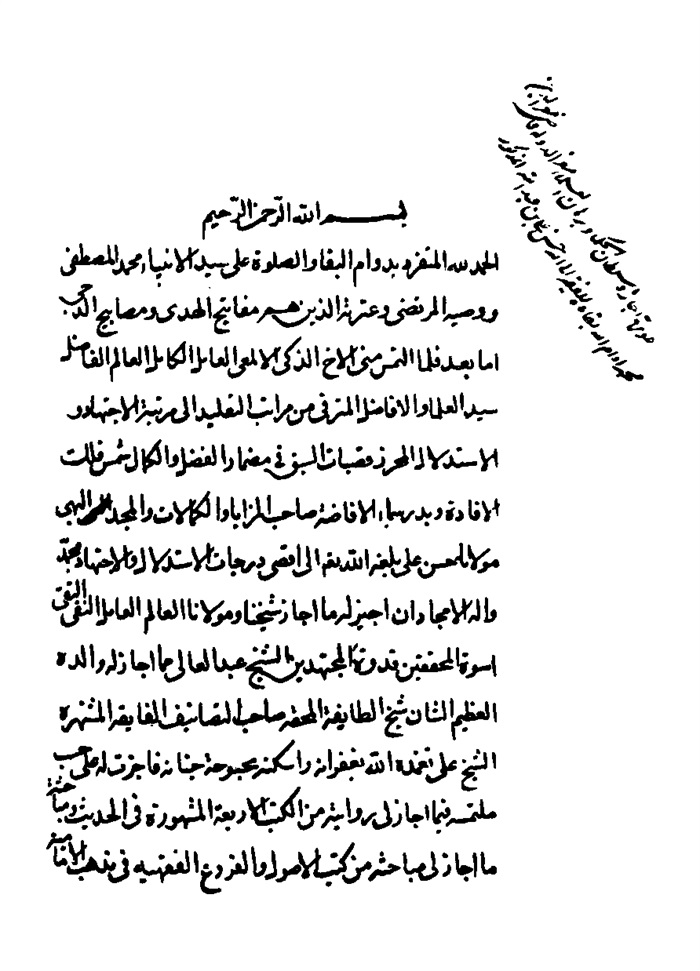 بسم الله الرّحمن الرّحيم
الحمد لله المتفرد بدوام البقاء والصلوة على سيد الانبياء محمد المصطفى
ووصيه المرتضى وعترته الذين هم مفاتيح الهدى ومصابيح الدجى
اما بعد فلما التمس منى الاخ الذكى الالمعى العامل الكامل العالم الفاضل
سيد العلماء والافاضل المترقى من مراتب التقليد الى مرتبة الاجتهاد و
الاستدلال المحرز قصبات السبق فى مضمار الفضل والكمال شمس فلك
الافادة وبدر سماء الافاضة صاحب المزايا والكمالات والمجد البهى
مولانا حسن على بلغه الله تعالى اقصى درجات الاستدلال والاجتهاد بمحمّد
واله الامجاد ان اجيز له ما اجاز شيخنا ومولانا العالم العامل التقى النقىّ
اسوة المحققين قدوة المجتهدين الشيخ عبد العالى مما اجاز له والده
العظيم الشان شيخ الطايفة المحقة صاحب التصانيف الفايقة المشتهرة
الشيخ على تغمده الله بغفرانه واسكنه بحبوحة جنانه فاجزت له على حسب
ملتمسه فيما اجاز لى روايته من الكتب الاربعة المشهورة فى الحديث ومباحثة
ما اجاز لى مباحثه من كتب الاصول والفروع الفقهيه فى مذهب الامامية
صورة اجازة
محمد ادام الله بقاه للفقير الى الله حسن على بن عبد الله المذكور